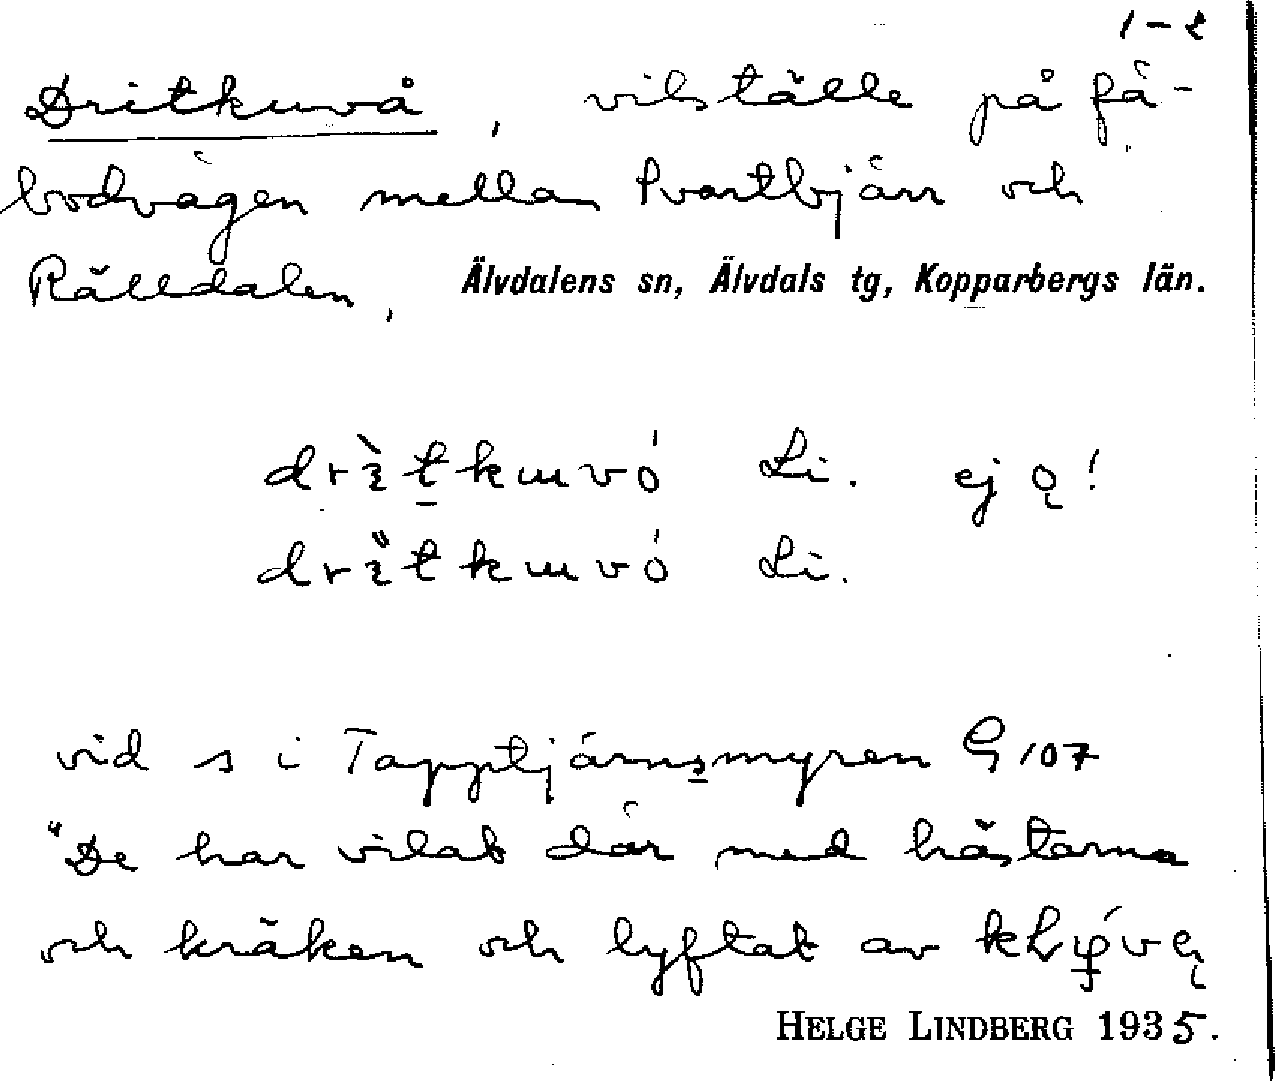 1-2
Dritkuvå, vilställe på fä-
bodvägen mellan Svartbjärn och
Rälldalen, Älvdalens sn, Älvdals tg, Kopparbergs län.
Li. ej ǫ!
Li.
vid s i Tapptjärnsmyren G 107
"De har vilat där med hästarna
och kräken och lyftat av
HELGE LINDBERG 1935.